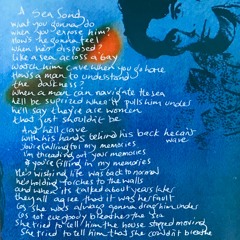 A Sea Song
What you gonna do
When you expose him?
How's he gonna feel
when he's disposed?
Like a sea across a bay
Watch him cave when you go here
How's a man to understand
the darkness?
When a man can navigate the sea
He'll be suprized when it pulls him under
He'll say they're are women
That just shouldn't be
And he'll clave
with his hands behind his back he can't wave
You're falling for my memories
I'm threading out your memories
If you're filling in my memories
He's wishing life was back to normal
He's holding torches to the walls
and when its talked about years later
They all agree that it was her fault
Cos she was always gonna drag him under
Cos not everybody breathes the sea
She tried to tell him the house stopped moving
She tried to tell him that she couldn't breathe